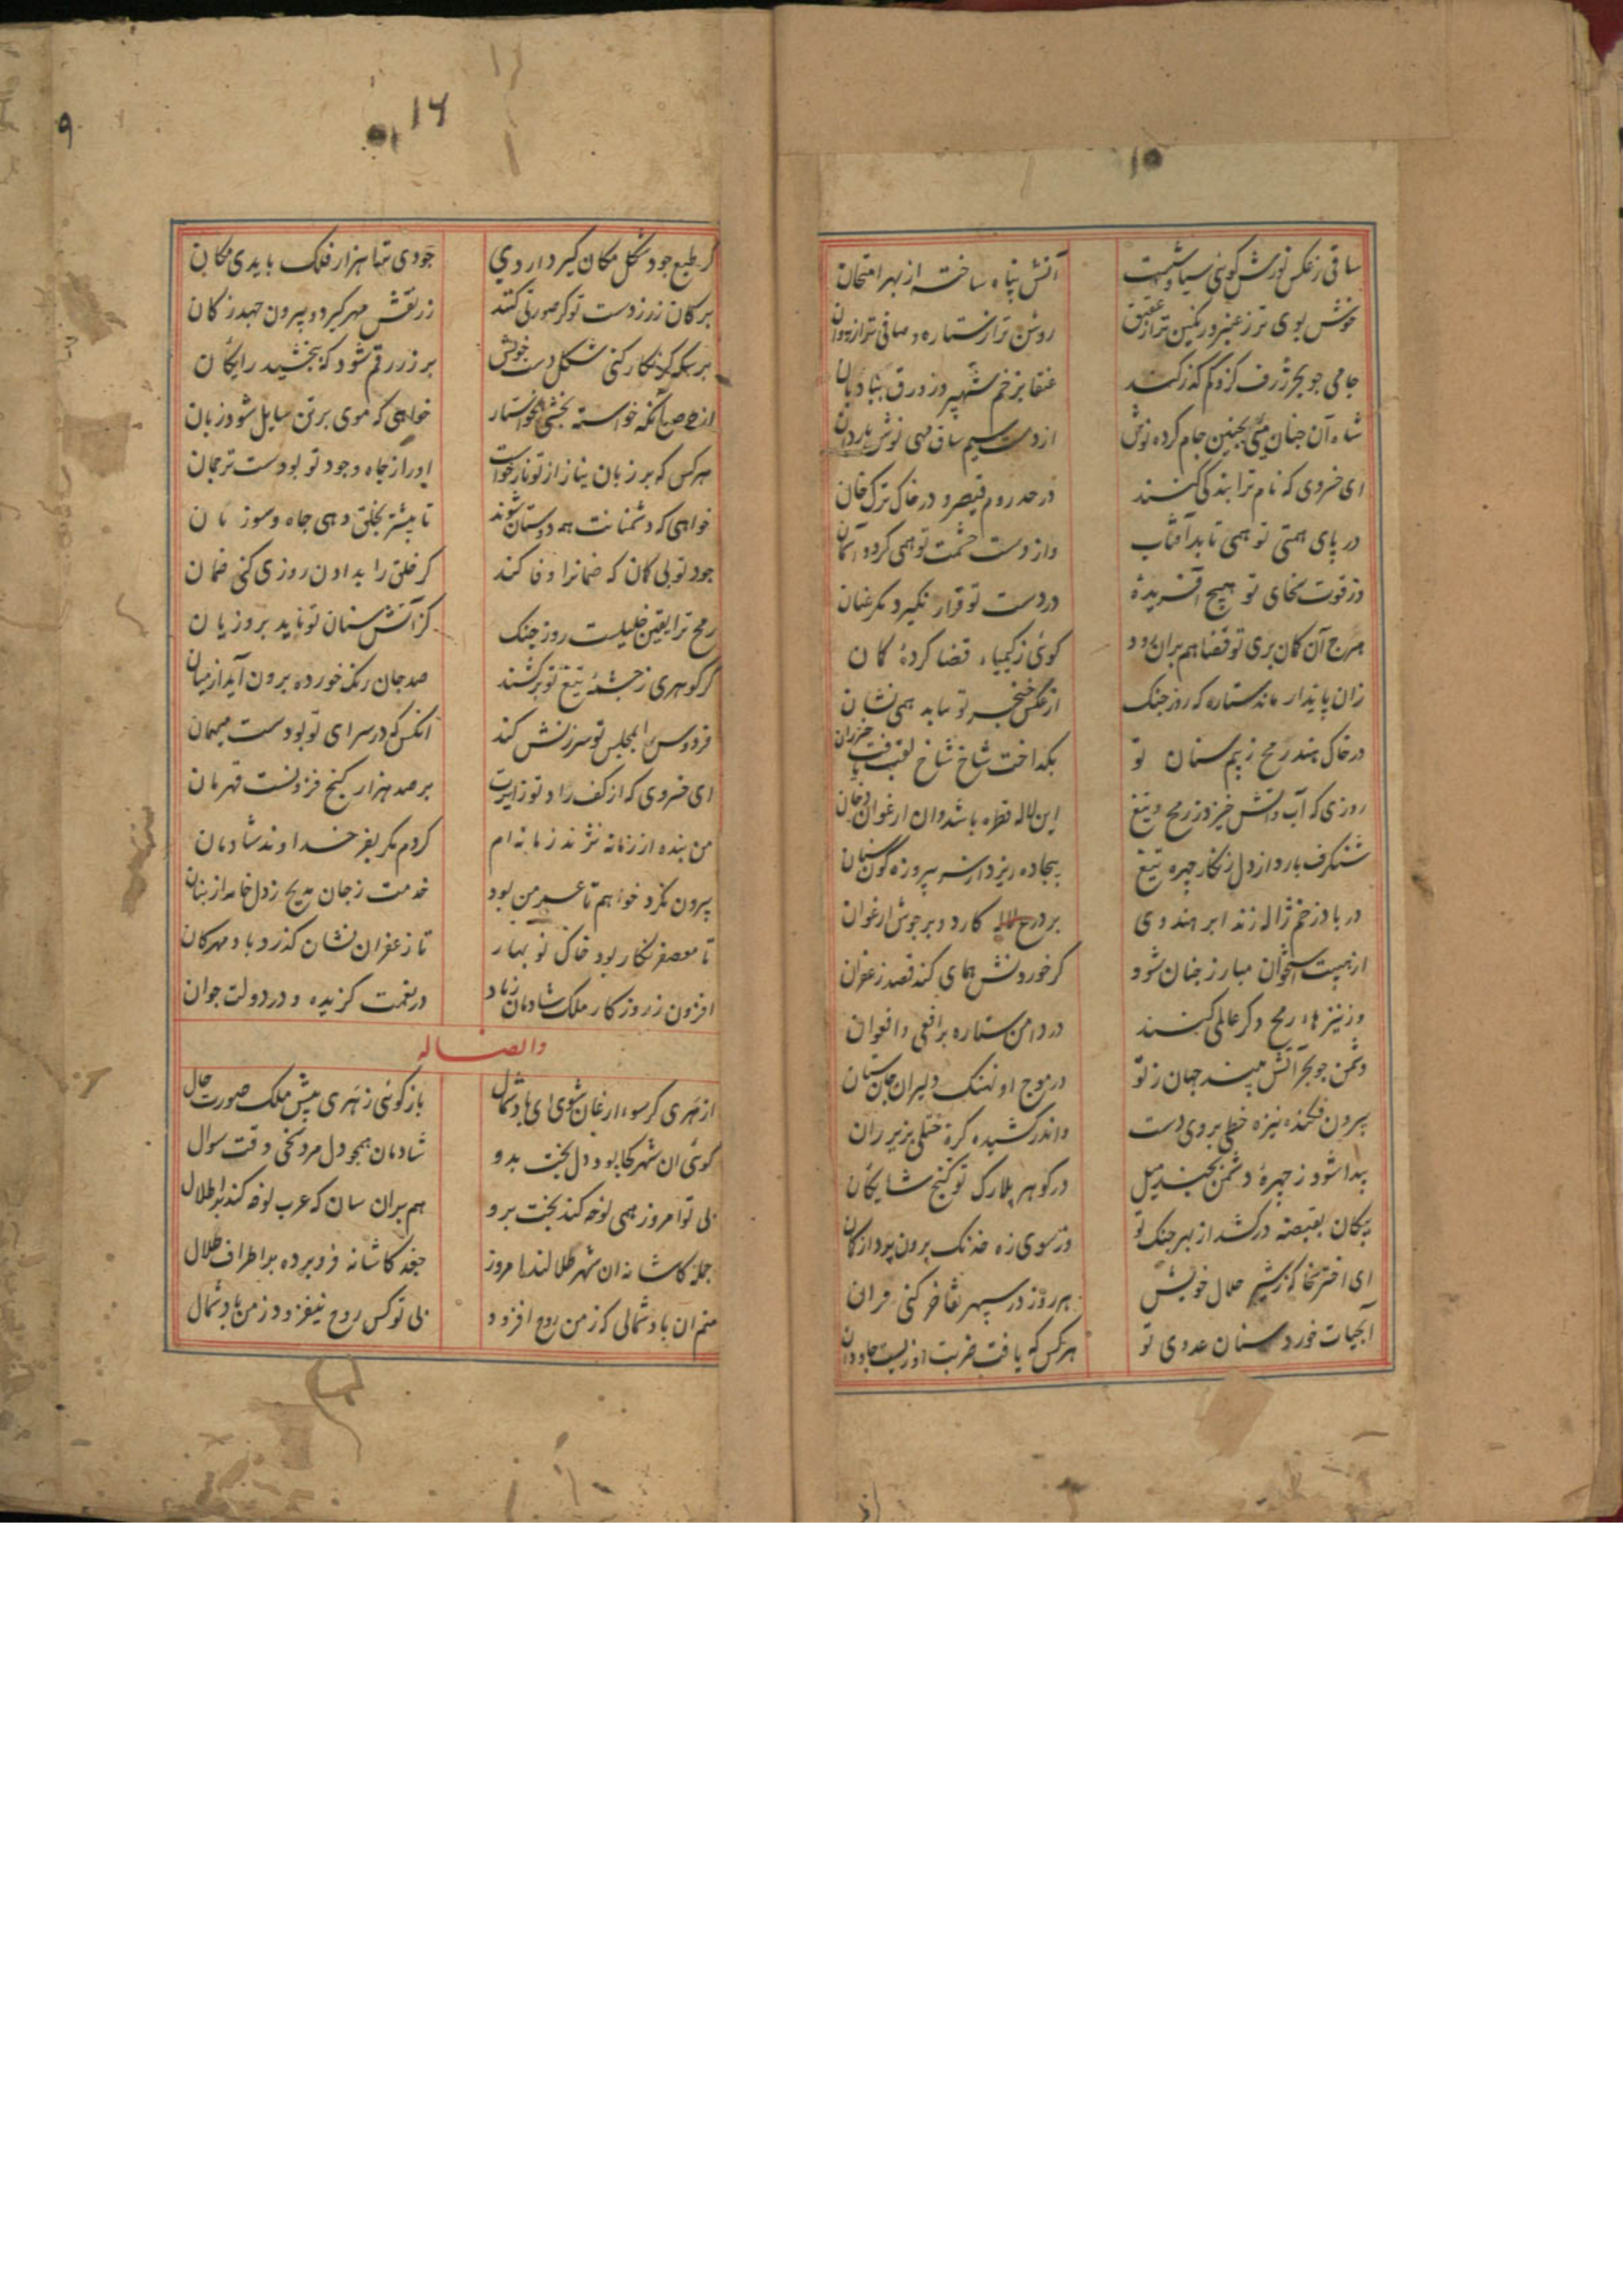 ۱۵
ساقی ز عکس نورش کوئی سیاوشیست آتش پناه ساخته از بهر امتحان
خوش بوی تر ز عنبر و رنکین تر از عقیق روشن تر از ستاره و صافی تر از روان
جامی جو بحر ژرف کزو کم کذر کند عنقا بزخم شهپر و زورق ببادبان
شاه آن جنان می بجنین جام کرده نوش از دست سیم ساق مهی نوش باردان
ای خسروی که نام ترا بندکی کنند در حد روم قیصر و در خاک ترک خان
در پای همتی تو همی تابد آفتاب واز دست حشمت تو همی کردد آسمان
وز قوت سخای تو هیچ آفریده در دست تو قرار نکیرد مکر عنان
هرج آن کمان بری تو قضا هم بران رود کوئی ز کیمیاء قضا کردهٔ کمان
زان پایدار ماند ستاره که روز جنک از عکس خنجر تو بیابد همی نشان
در خاک هند رمح ز بیم سنان تو بکداخت شاخ شاخ لقب یافت خیزران
روزی که آب و آتش خیزد ز رمح و تیغ این لاله قطره باشد وان ارغوان دخان
شنکرف بارد از دل زنکار چهره تیغ بیجاده ریزد از سر پیروزه کون سنان
در باد زخم ژاله زند ابر هندوی بر درع لاله کارد و بر جوش ارغوان
از هیبت استخوان مبارز جنان شود کر خوردنش همای کند قصد زعفران
وز نیزهاء رمح دکر عالمی کنند در دامن ستاره بر افعی و افعوان
دشمن جو بحر آتش بیند جهان ز تو در موج او نهنک دلیران جان ستان
بیرون فکنده نیزه خطی بروی دست واندر کشیده کرهٔ ختلی بزیر ران
پیدا شود ز چهرهٔ دشمن بجند میل در کوهر بلارک تو کنج شایکان
پیکان بقبضه درکشد از بهر جنک تو وز سوی زه خدنک برون پرد از کمان
ای اختر سخا که ز شیر حلال خویش هر روز در سپهر تفاخر کنی قران
آبحیات خورد سنان عدوی تو هرکس که یافت ضربت او زیست جاودان
۱۶
۹
کر طبع جود شکل مکان کیرد از روی جودی تنها هزار فلک بایدی مکان
بر کان زر ز دست تو کر صورتی کنند زر نقش مهر کیرد و بیرون جهد ز کان
بر سکه کر نکار کنی شکل دست خویش بر زر رقم شود که ببخشید رایکان
از حرص آنکه خواسته بخشی بخواستار خواهی که موی بر تن سایل شود زبان
هرکس که بر زبان نیاز از تو ناز خواست او را ز جاه و جود تو بودست ترجمان
خواهی که دشمنانت همه دوستان شوند تا بیشتر بخلق دهی جاه و سوزیان
جود تو بی کمان که ضمانرا وفا کند کر خلق را بدادن روزی کنی ضمان
رمح ترا یقین خلیلست روز جنک کز آتش سنان تو ناید برو زیان
کر کوهری ز جشمهٔ تیغ تو برکشند صد جان رنک خورده برون آید از میان
فردوس را بمجلس تو سرزنش کند آنکس که در سرای تو بودست میهمان
ای خسروی که از کف راد تو زایرت بر صد هزار کنج فزونست قهرمان
من بنده از زمانه نژند زمانه ام کردم مکر بفر خداوند شادمان
بیرون نکرد خواهم تا عمر من بود خدمت ز جان مدیح ز دل خامه از بنان
تا معصفر نکار بود خاک نوبهار تا زعفران نشان کذرد باد مهرکان
افزون ز روزکار ملک شادمان زیاد در نعمت کزیده و در دولت جوان
وایضا له
از هری کر سوء ارغان شوی ای باد شمال باز کوئی ز هری پیش ملک صورت حال
کوئی ان شهر کجا بود دل بخت بدو شادمان همجو دل مرد سخی وقت سوال
بی تو امروز همی نوحه کند بخت برو هم بران سان که عرب نوحه کند بر اطلال
جمله کاشانه ان شهر طلالند امروز جغد کاشانه فرو برده بر اطراف طلال
منم ان باد شمالی که ز من روح افزود بی تو کس روح نیفزود ز من باد شمال